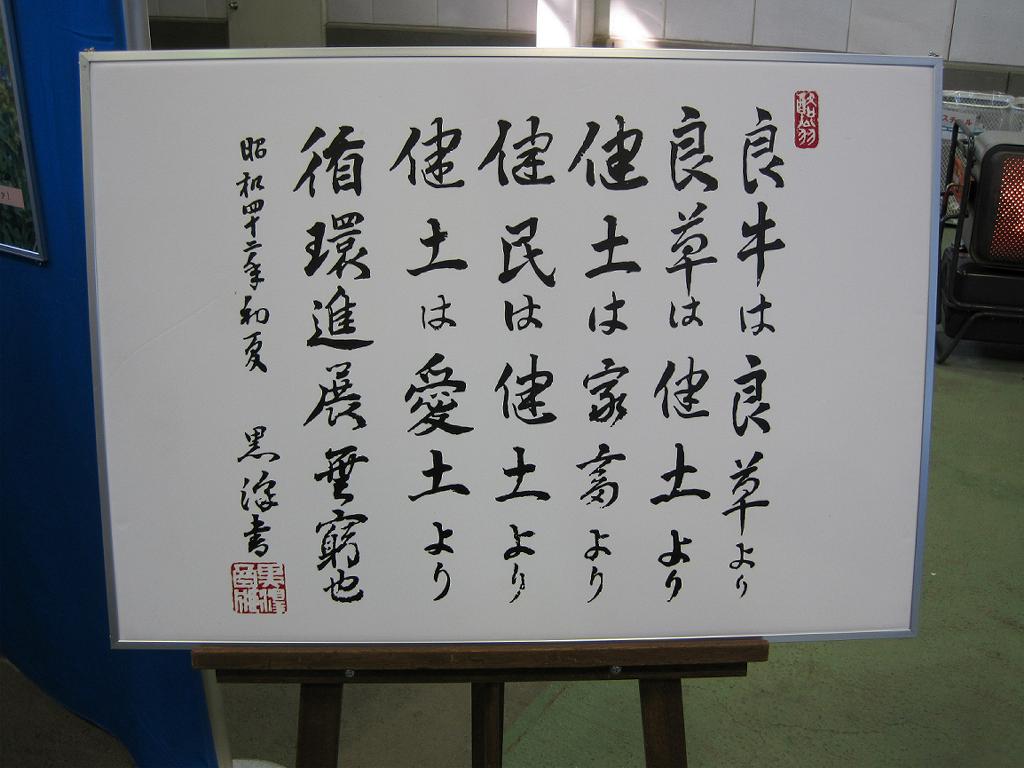 良牛は良草より
良草は健土より
健土は家畜より
健民は健土より
健土は愛土より
循環進展無窮也
昭和四十二年初夏 黒澤書